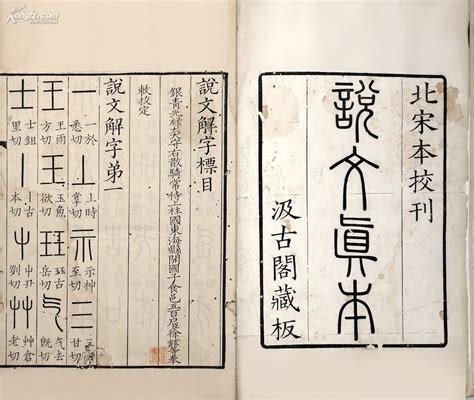 北宋本校刊
說文眞本
汲古閣藏板
說文解字標目
銀青光祿大夫守右散騎常侍上柱國東海縣開國子食邑五百戶臣徐鉉等奉
敕校定
說文解字弟一
一 一於悉切 丄 上時掌切 示 示神切 三 甘切
王 王雨方切 王 玉魚欲切 玨 玨古岳切 气 气去切
士 士鉏里切 丨 丨古本切 屮 屮丑切 艸 艸倉老切
Kongfz.com